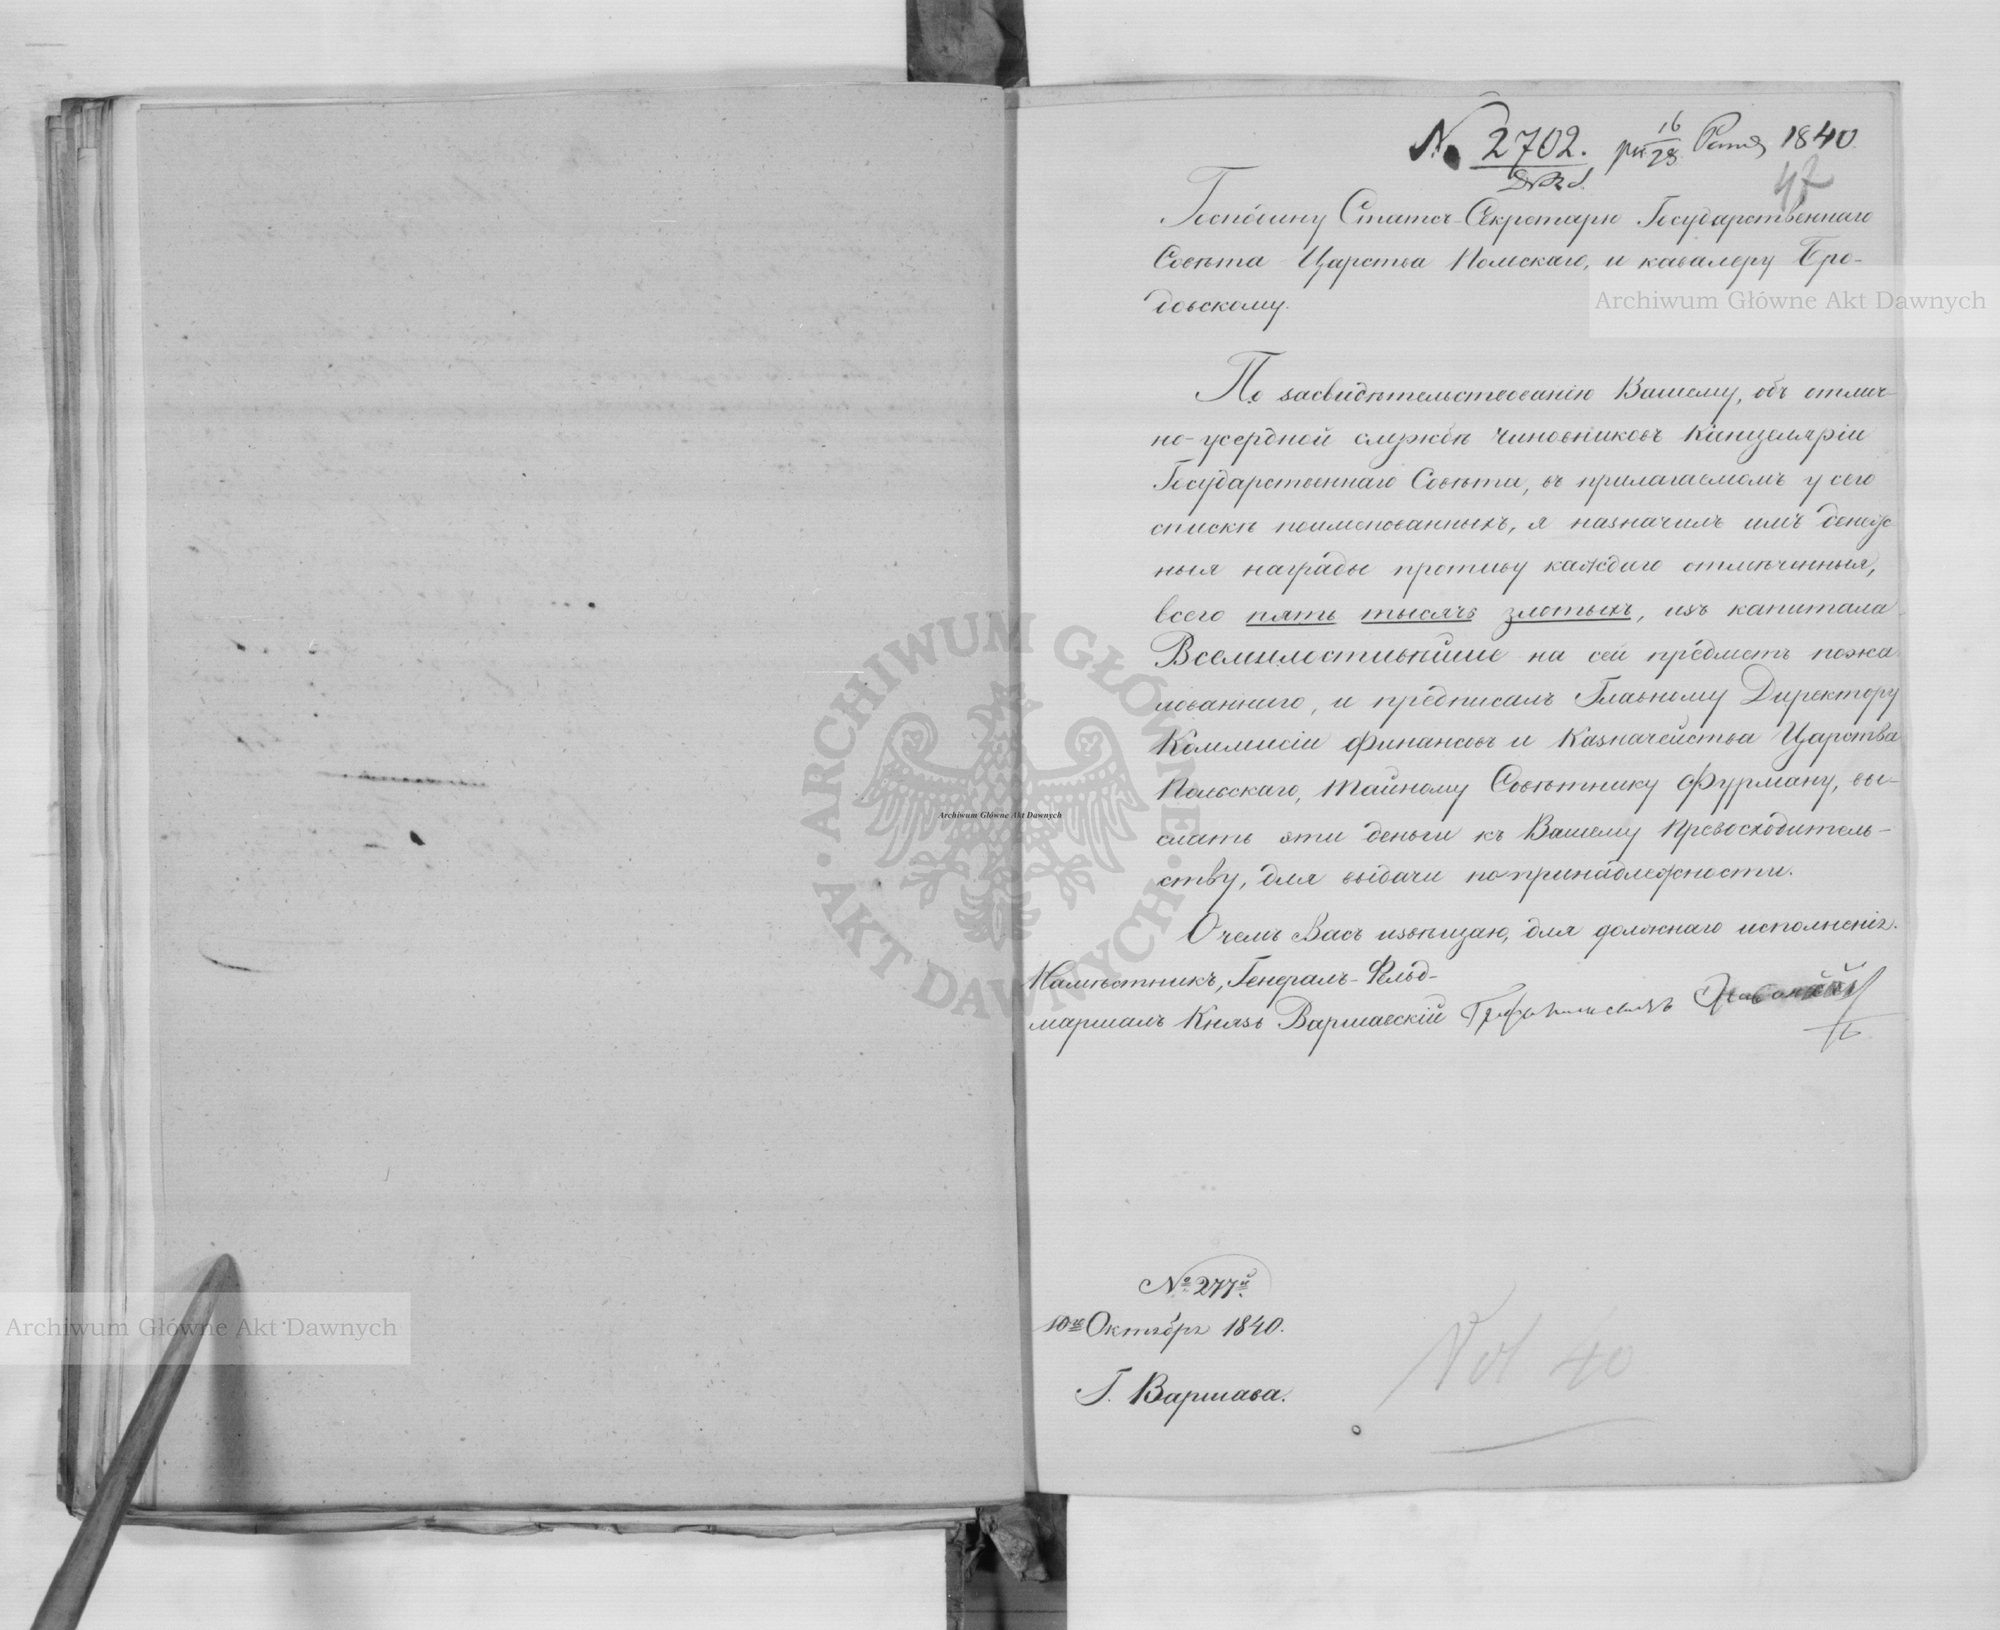 № 2702. 16/28 1840
47
Господину Статсъ-Секретарю Государственнаго
Совѣта Царства Польскаго, и кавалеру Бро-
довскому.
По засвидѣтельствованію Вашему, объ отлич-
но-усердной службѣ чиновниковъ Канцеляріи
Государственнаго Совѣта, въ прилагаемомъ у сего
спискѣ поименованныхъ, я назначилъ имъ денеж-
ныя награды противу каждаго отмѣченныя,
всего пять тысячъ злотыхъ, изъ капитала
Всемилостивѣйше на сей предметъ пожа-
лованнаго, и предписалъ Главному Директору
Коммисіи Финансовъ и Казначейства Царства
Польскаго, Тайному Совѣтнику Фурману, вы-
слать эти деньги къ Вашему Превосходитель-
ству, для выдачи по принадлежности.
О чемъ Васъ извѣщаю, для должнаго исполненія.
Намѣстникъ, Генералъ-Фельд-
маршалъ Князь Варшавскій
№ 277й.
10го Октября 1840.
Г. Варшава.
Vol. 40
Archiwum Główne Akt Dawnych
Archiwum Główne Akt Dawnych
Archiwum Główne Akt Dawnych
ARCHIWUM GŁÓWNE AKT DAWNYCH